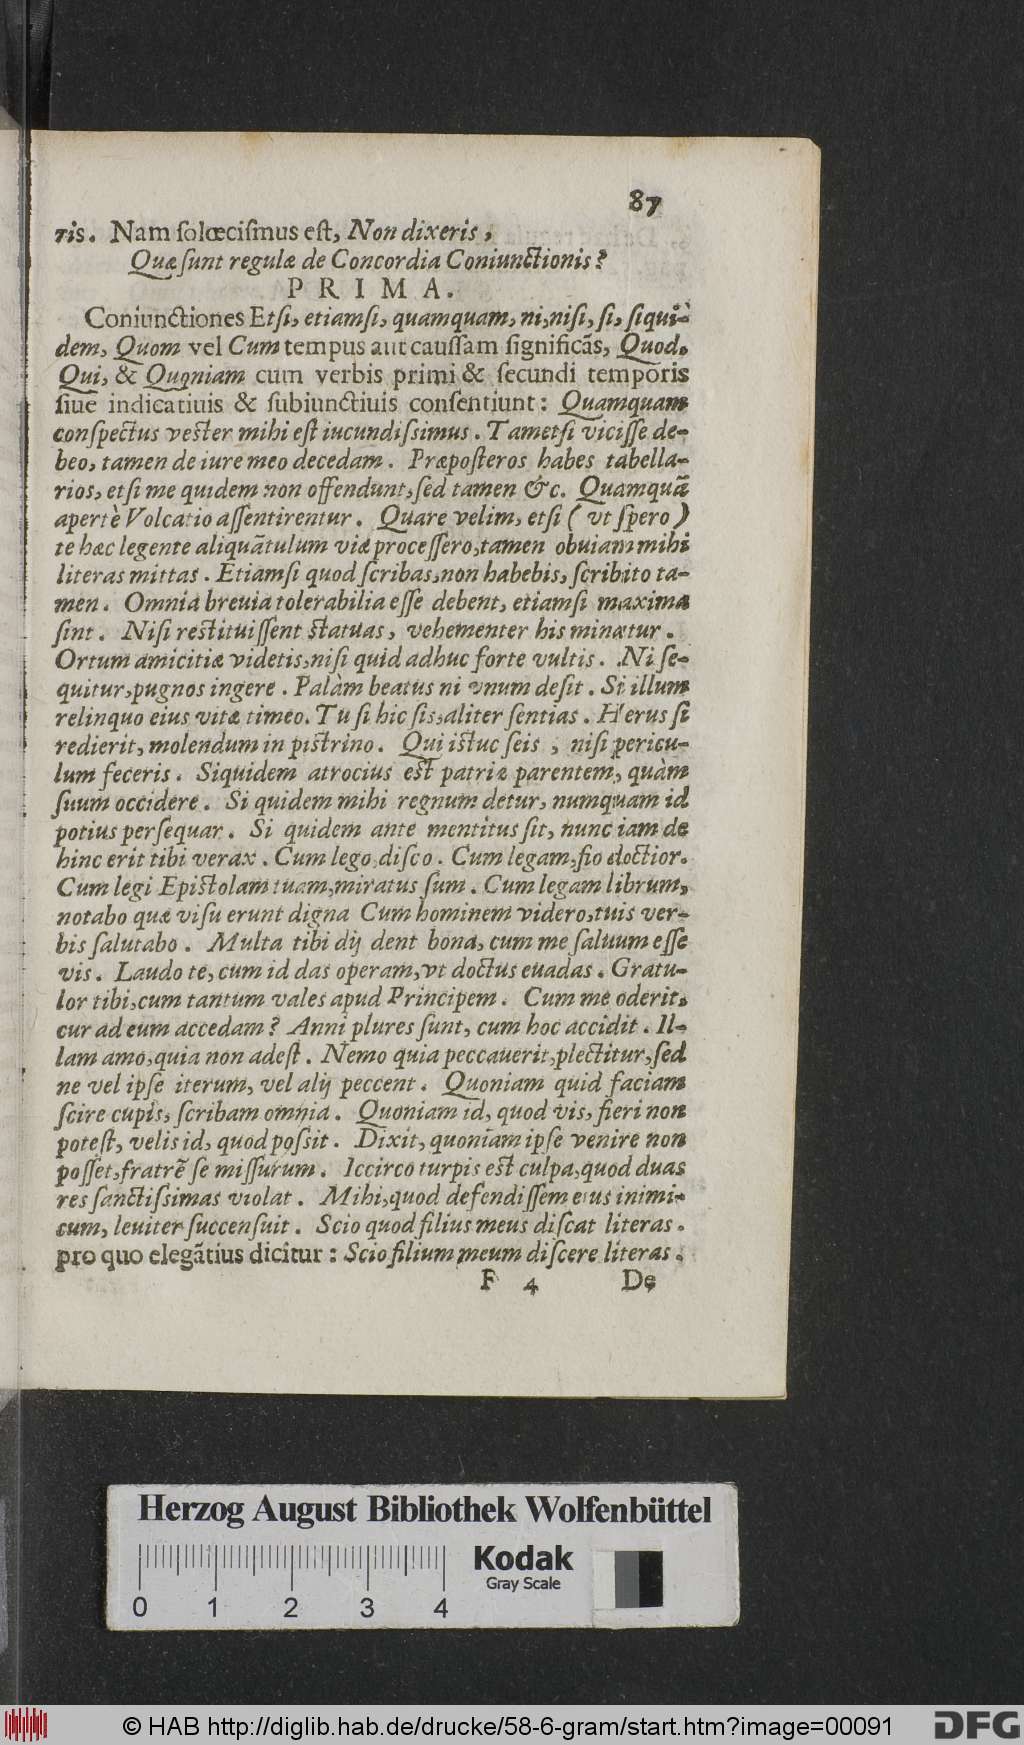 87
ris. Nam ſolœciſmus eſt, Non dixeris,
Quæ ſunt regulæ de Concordia Coniunctionis?
PRIMA.
Coniunctiones Etſi, etiamſi, quamquam, ni, niſi, ſi, ſiqui-
dem, Quom vel Cum tempus aut cauſſam ſignificãs, Quod.
Qui, & Quoniam cum verbis primi & ſecundi temporis
ſiue indicatiuis & ſubiunctiuis conſentiunt: Quamquam
conſpectus veſter mihi eſt iucundiſsimus. Tametſi viciſſe de-
beo, tamen de iure meo decedam. Præpoſteros habes tabella-
rios, etſi me quidem non offendunt, ſed tamen &c. Quamquã
apertè Volcatio aſſentirentur. Quare velim, etſi (vt ſpero)
te hæc legente aliquãtulum viæ proceſſero, tamen obuiam mihi
literas mittas. Etiamſi quod ſcribas, non habebis, ſcribito ta-
men. Omnia breuia tolerabilia eſſe debent, etiamſi maxima
ſint. Niſi reſtituiſſent ſtatuas, vehementer his minatur.
Ortum amicitiæ videtis, niſi quid adhuc forte vultis. Ni ſe-
quitur, pugnos ingere. Palàm beatus ni vnum deſit. Si illum
relinquo eius vitæ timeo. Tu ſi hic ſis, aliter ſentias. Herus ſi
redierit, molendum in piſtrino. Qui iſtuc ſeis, niſi pericu-
lum feceris. Siquidem atrocius eſt patriæ parentem, quàm
ſuum occidere. Si quidem mihi regnum detur, numquam id
potius perſequar. Si quidem ante mentitus ſit, nunc iam de
hinc erit tibi verax. Cum lego, diſco. Cum legam, fio doctior.
Cum legi Epiſtolam tuam, miratus ſum. Cum legam librum,
notabo quæ viſu erunt digna Cum hominem videro, tuis ver-
bis ſalutabo. Multa tibi dij dent bona, cum me ſaluum eſſe
vis. Laudo te, cum id das operam, vt doctus euadas. Gratu-
lor tibi, cum tantum vales apud Principem. Cum me oderit,
cur ad eum accedam? Anni plures ſunt, cum hoc accidit. Il-
lam amo, quia non adeſt. Nemo quia peccauerit, plectitur, ſed
ne vel ipſe iterum, vel alij peccent. Quoniam quid faciam
ſcire cupis, ſcribam omnia. Quoniam id, quod vis, fieri non
poteſt, velis id, quod poſsit. Dixit, quoniam ipſe venire non
poſſet, fratrẽ ſe miſſurum. Iccirco turpis eſt culpa, quod duas
res ſanctiſsimas violat. Mihi, quod defendiſſem eius inimi-
cum, leuiter ſuccenſuit. Scio quod filius meus diſcat literas.
pro quo elegãtius dicitur: Scio filium meum diſcere literas.
F 4 De
Herzog August Bibliothek Wolfenbüttel
Kodak
Gray Scale
0 1 2 3 4
© HAB http://diglib.hab.de/drucke/58-6-gram/start.htm?image=00091
DFG